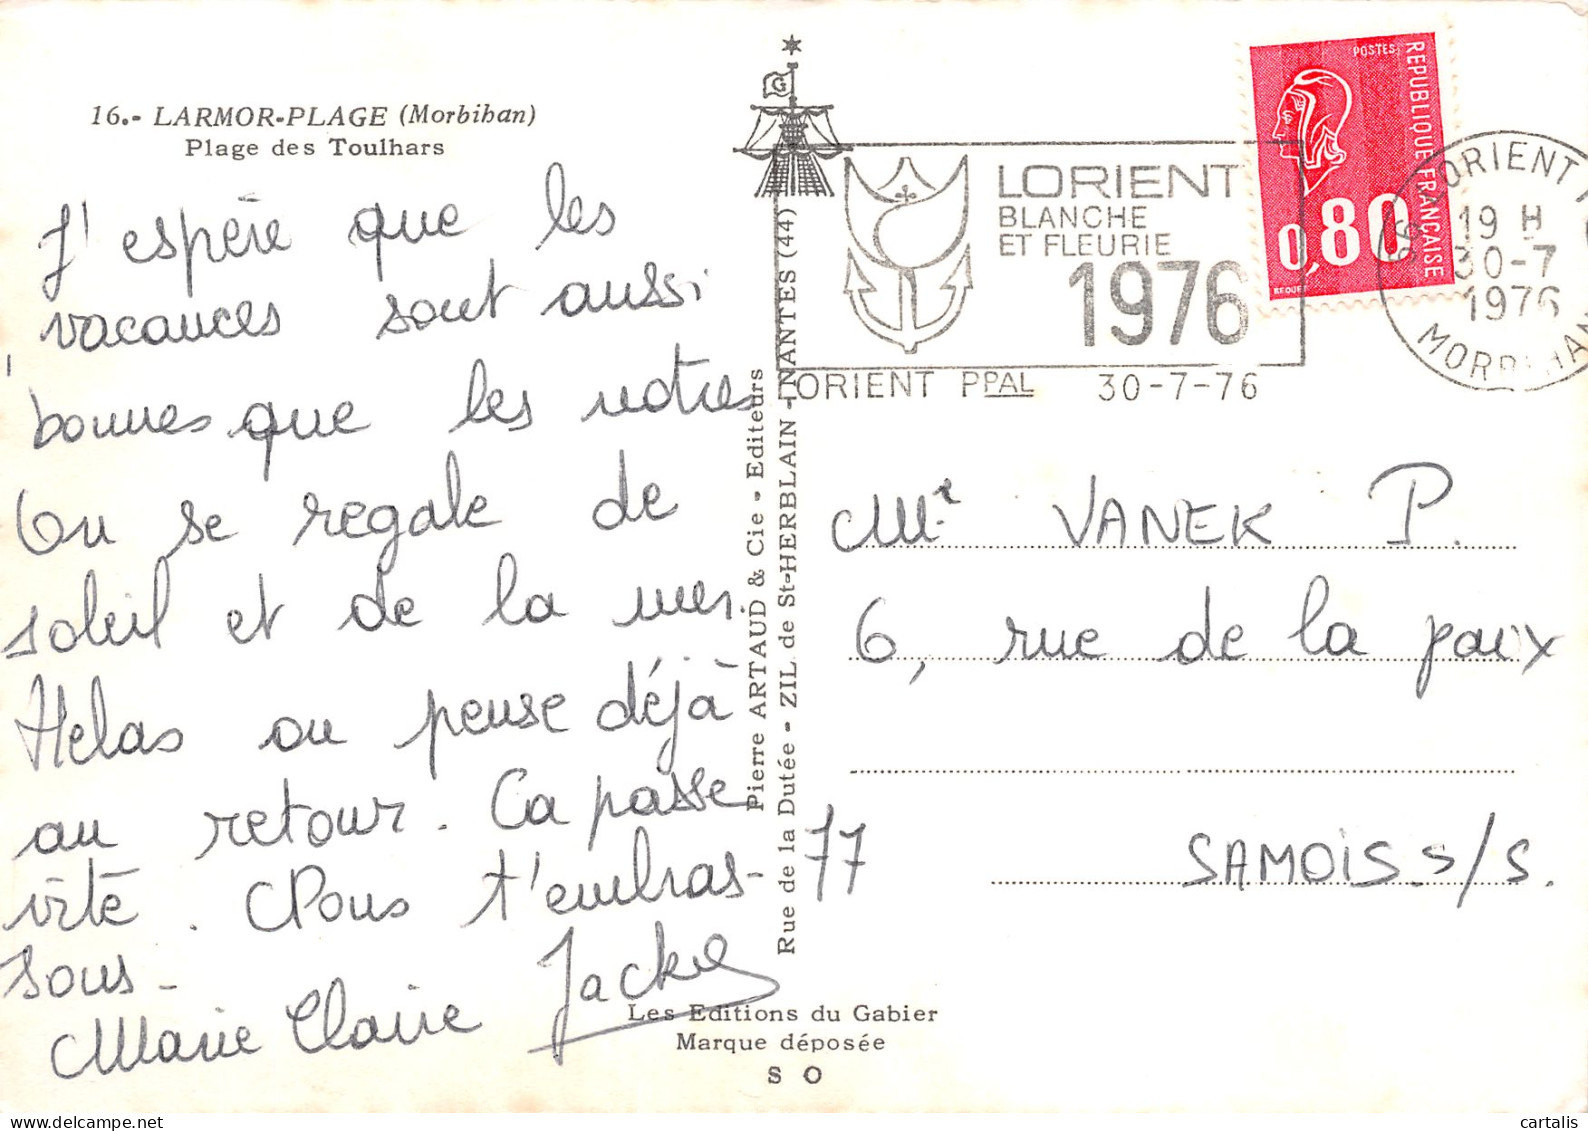 16.- LARMOR-PLAGE (Morbihan)
Plage des Toulhars
J'espère que les
vacances sont aussi
bonnes que les notres
On se regale de
soleil et de la mer.
Helas on pense déjà
au retour. Ca passe
vite. Nous t'embras-
sous-
Marie Claire Jackie
Pierre ARTAUD & Cie - Editeurs
Rue de la Dutée - ZIL de St-HERBLAIN - NANTES (44)
Les Editions du Gabier
Marque déposée
S O
G
LORIENT
BLANCHE
ET FLEURIE
1976
LORIENT PPAL 30-7-76
POSTES
REPUBLIQUE FRANÇAISE
0,80
BEQUET
56 LORIENT P
19 H
30-7
1976
MORBIHAN
Mr VANEK P.
6, rue de la paix
77 SAMOIS S/S.
cartalis